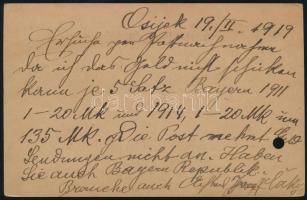 Osijek 19./II. 1919
Ersuche per Postnachnahme
da ich das Geld nicht schicken
kann je 5 Satz Bayern 1911
1-20 Mk und 1914, 1-20 Mk um
135 Mk. Die Post nehmt
Sendungen nicht an. Haben
Sie auch Bayern Republik.
Brauche auch